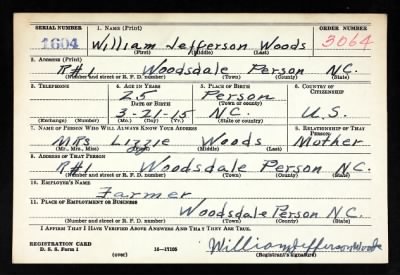 SERIAL NUMBER 1. NAME (Print) ORDER NUMBER
1604 William Jefferson Woods 3064
(First) (Middle) (Last)
2. ADDRESS (Print)
R#1 Woodsdale Person N.C.
(Number and street or R. F. D. number) (Town) (County) (State)
3. TELEPHONE 4. AGE IN YEARS 5. PLACE OF BIRTH 6. COUNTRY OF CITIZENSHIP
25 Person
DATE OF BIRTH (Town or county)
3-21-15 N.C. U.S.
(Exchange) (Number) (Mo.) (Day) (Yr.) (State or country)
7. NAME OF PERSON WHO WILL ALWAYS KNOW YOUR ADDRESS 8. RELATIONSHIP OF THAT PERSON
Mrs Lizzie Woods Mother
(Mr., Mrs., Miss) (First) (Middle) (Last)
9. ADDRESS OF THAT PERSON
R#1 Woodsdale Person N.C.
(Number and street or R. F. D. number) (Town) (County) (State)
10. EMPLOYER'S NAME
Farmer
11. PLACE OF EMPLOYMENT OR BUSINESS
Woodsdale Person N.C.
(Number and street or R. F. D. number) (Town) (County) (State)
I AFFIRM THAT I HAVE VERIFIED ABOVE ANSWERS AND THAT THEY ARE TRUE.
REGISTRATION CARD
D. S. S. Form 1 16-17105 William Jefferson Woods
(over) (Registrant's signature)